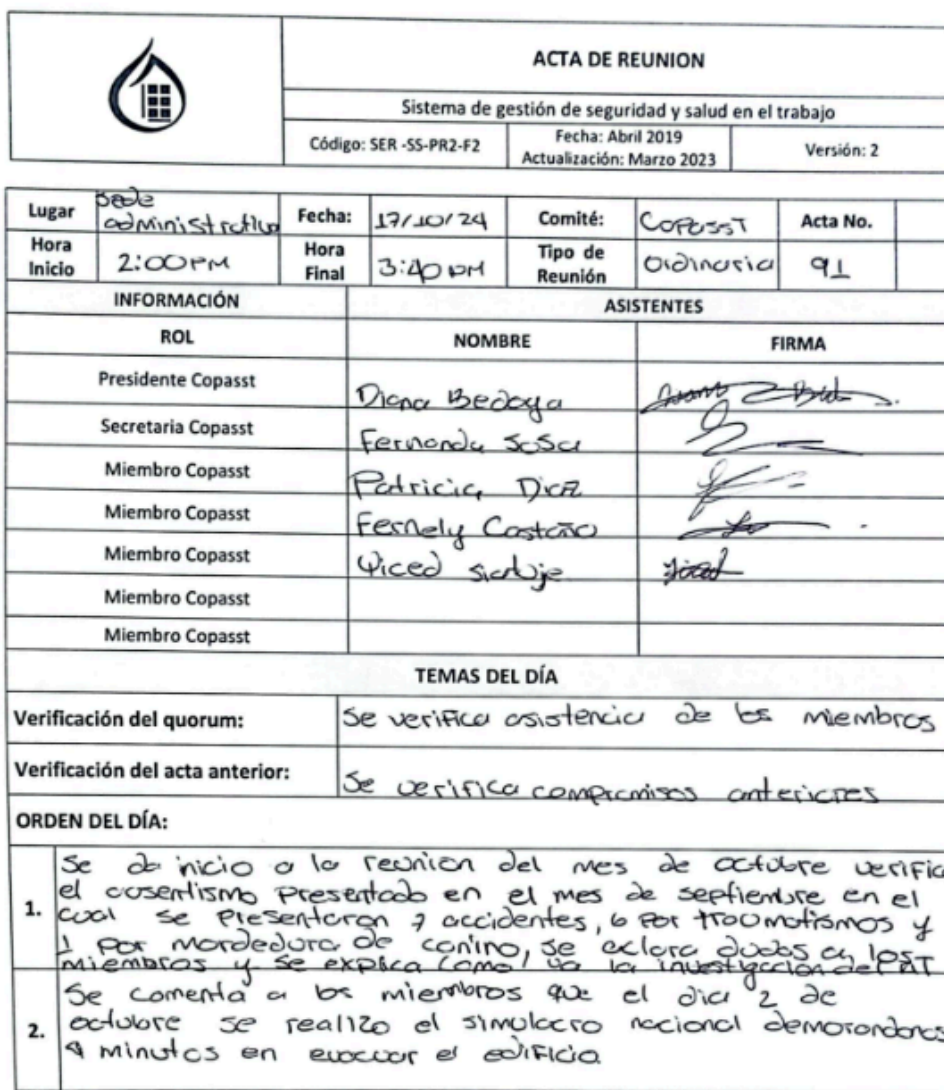 ACTA DE REUNION
Sistema de gestión de seguridad y salud en el trabajo
Código: SER -SS-PR2-F2
Fecha: Abril 2019
Actualización: Marzo 2023
Versión: 2
Lugar Sede administrativa Fecha: 17/10/24 Comité: Copasst Acta No.
Hora Inicio 2:00PM Hora Final 3:40 PM Tipo de Reunión Ordinaria 91
INFORMACIÓN ASISTENTES
ROL NOMBRE FIRMA
Presidente Copasst Diana Bedoya
Secretaria Copasst Fernanda Sosa
Miembro Copasst Patricia Diaz
Miembro Copasst Fernely Castaño
Miembro Copasst
Miembro Copasst
Miembro Copasst
TEMAS DEL DÍA
Verificación del quorum: Se verifica asistencia de los miembros
Verificación del acta anterior: Se verifica compromisos anteriores
ORDEN DEL DÍA:
1. Se da inicio a la reunion del mes de octubre verific
el ausentismo presentado en el mes de septiembre en el
cual se presentaron 7 accidentes, 6 por traumatismos y
1 por mordedura de canino, se aclara dudas a los
miembros y se explica como va la investigación de AT
2. Se comenta a los miembros que el dia 2 de
octubre se realizo el simulacro nacional demorandonos
4 minutos en evacuar el edificio